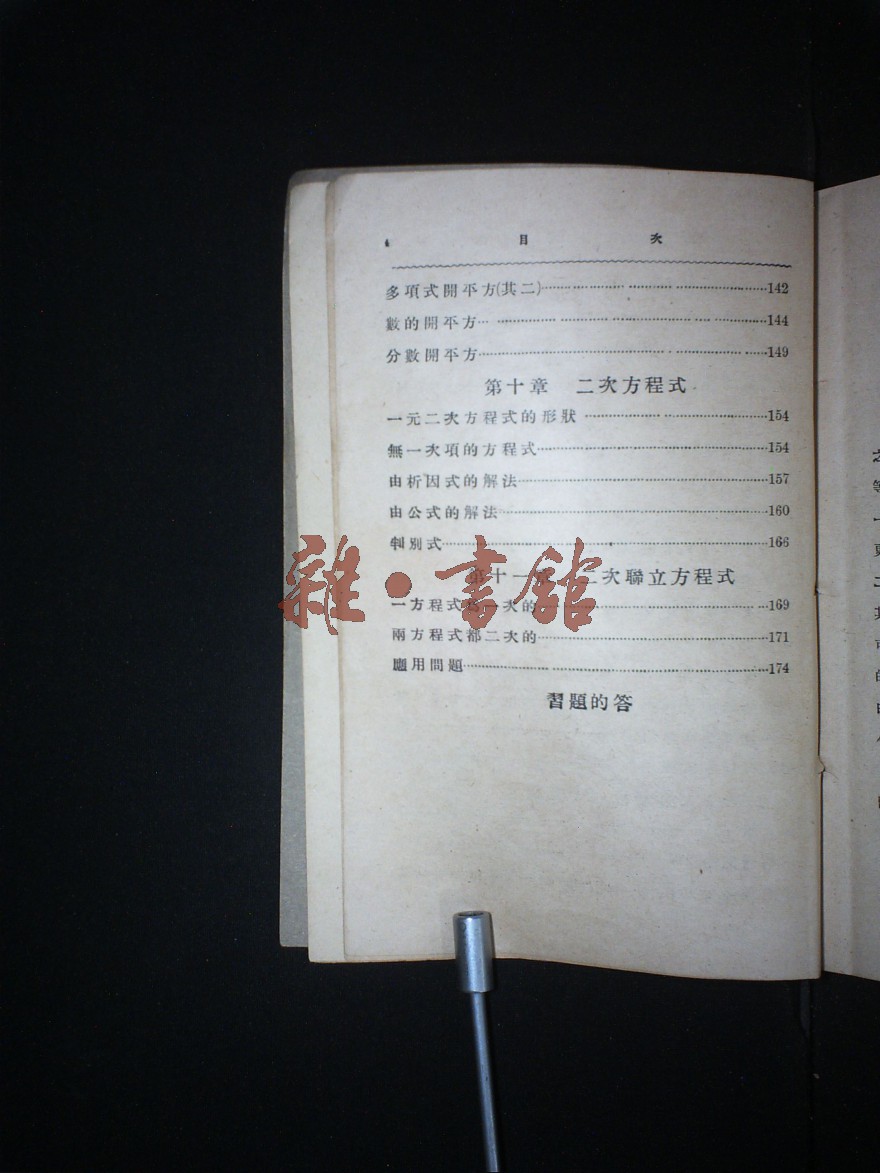 目次
多項式開平方(其二)……142
數的開平方……144
分數開平方……149
第十章 二次方程式
一元二次方程式的形狀……154
無一次項的方程式……154
由析因式的解法……157
由公式的解法……160
判別式……166
第十一章 二次聯立方程式
一方程式 一次的……169
兩方程式都二次的……171
應用問題……174
習題的答
雜·書館